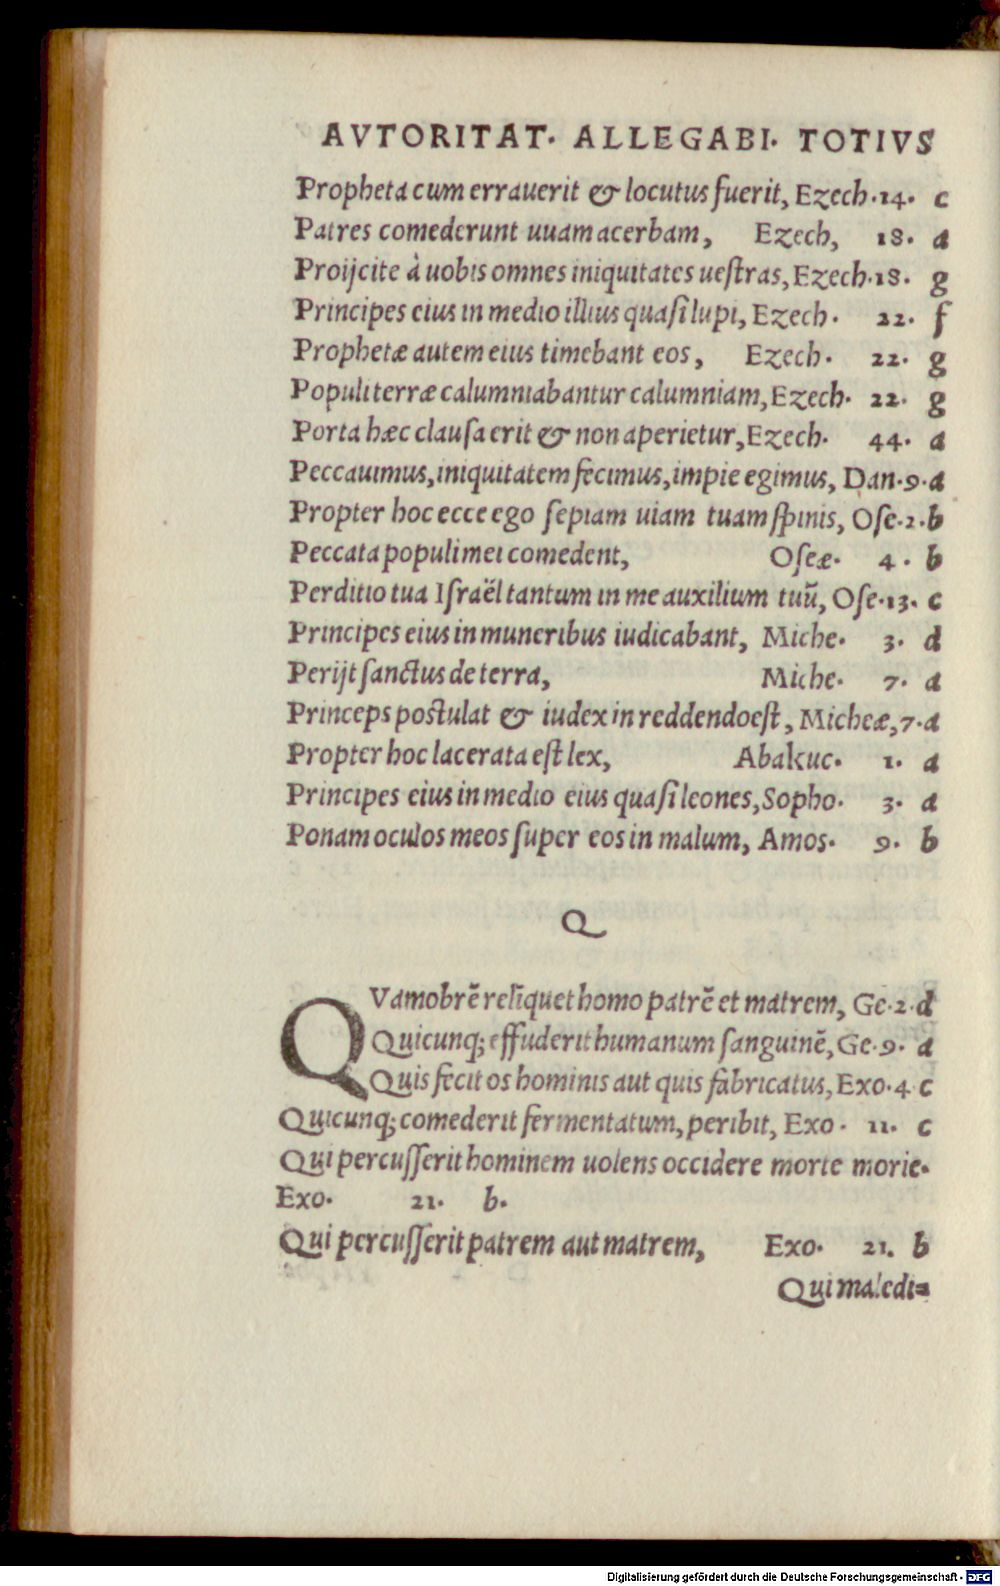 AVTORITAT. ALLEGABI. TOTIVS
Propheta cum errauerit & locutus fuerit, Ezech. 14. c
Patres comederunt uuam acerbam, Ezech, 18. a
Proijcite à uobis omnes iniquitates ueſtras, Ezech. 18. g
Principes eius in medio illius quaſi lupi, Ezech. 22. f
Prophetæ autem eius timebant eos, Ezech. 22. g
Populi terræ calumniabantur calumniam, Ezech. 22. g
Porta hæc clauſa erit & non aperietur, Ezech. 44. a
Peccauimus, iniquitatem fecimus, impie egimus, Dan. 9. a
Propter hoc ecce ego ſepiam uiam tuam ſpinis, Oſe. 2. b
Peccata populi mei comedent, Oſeæ. 4. b
Perditio tua Iſraël tantum in me auxilium tuū, Oſe. 13. c
Principes eius in muneribus iudicabant, Miche. 3. d
Perijt ſanctus de terra, Miche. 7. a
Princeps poſtulat & iudex in reddendo eſt, Micheæ, 7. a
Propter hoc lacerata eſt lex, Abakuc. 1. a
Principes eius in medio eius quaſi leones, Sopho. 3. a
Ponam oculos meos ſuper eos in malum, Amos. 9. b
Q
QVamobrē relīquet homo patrē et matrem, Ge. 2. d
Quicunq; effuderit humanum ſanguinē, Ge. 9. a
Quis fecit os hominis aut quis fabricatus, Exo. 4 c
Quicunq; comederit fermentatum, peribit, Exo. 11. c
Qui percuſſerit hominem uolens occidere morte morie.
Exo. 21. b.
Qui percuſſerit patrem aut matrem, Exo. 21. b
Qui maledi=
Digitalisierung gefördert durch die Deutsche Forschungsgemeinschaft - DFG